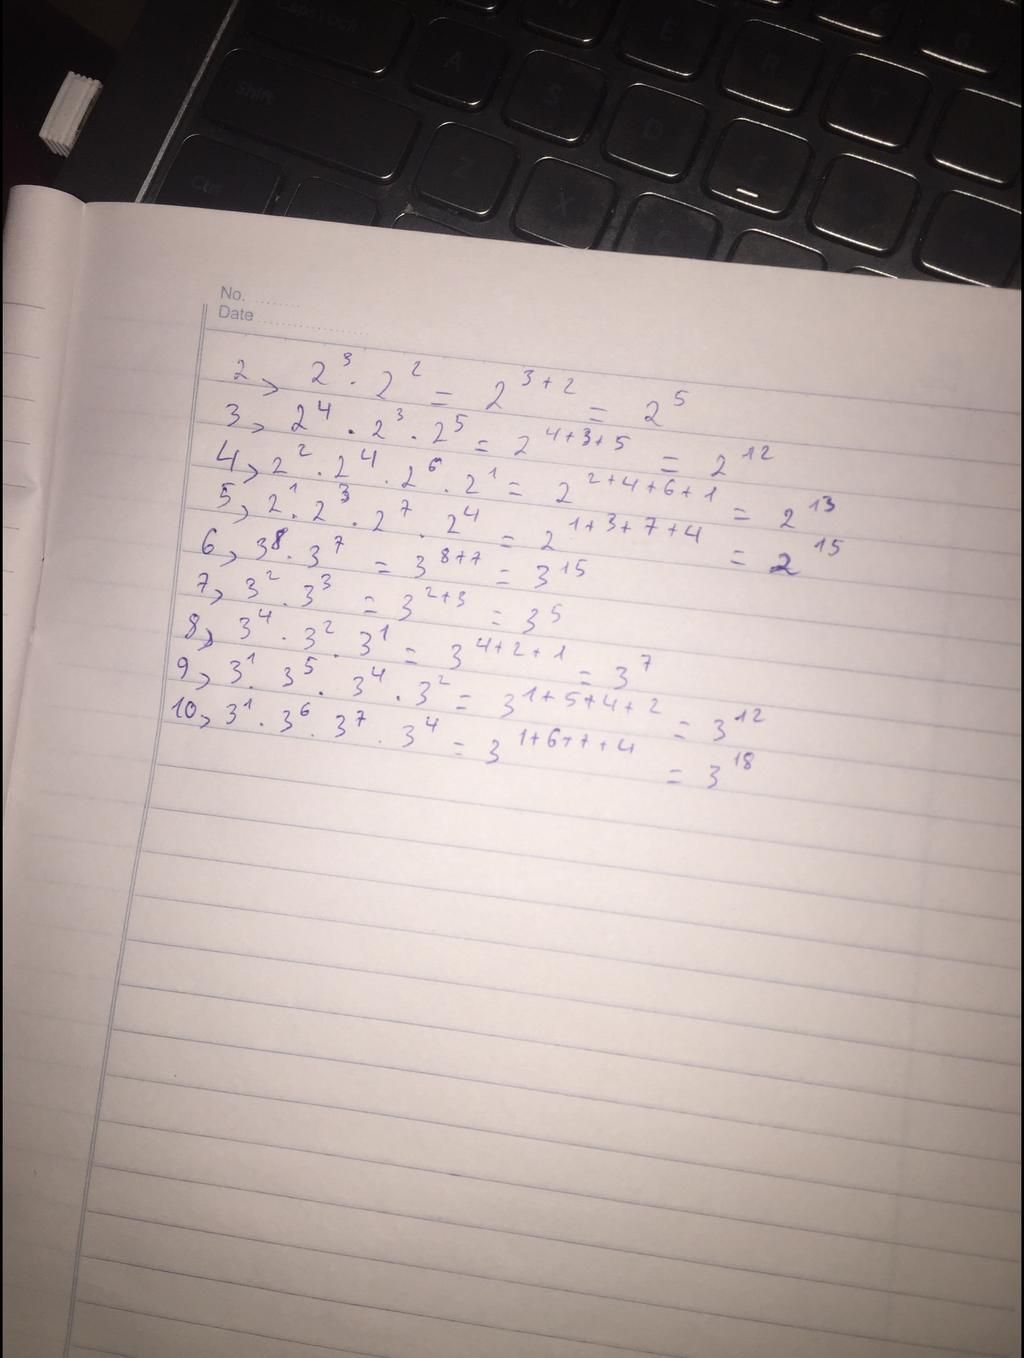 Caps Lock
W
E
R
A
S
D
T
Shift
Z
X
C
F
Ctrl
No. ........
Date ....................
2, 2³ · 2² = 2³⁺² = 2⁵
3, 2⁴ · 2³ · 2⁵ = 2⁴⁺³⁺⁵ = 2¹²
4, 2² · 2⁴ · 2⁶ · 2¹ = 2²⁺⁴⁺⁶⁺¹ = 2¹³
5, 2¹ · 2³ · 2⁷ · 2⁴ = 2¹⁺³⁺⁷⁺⁴ = 2¹⁵
6, 3⁸ · 3⁷ = 3⁸⁺⁷ = 3¹⁵
7, 3² · 3³ = 3²⁺³ = 3⁵
8, 3⁴ · 3² · 3¹ = 3⁴⁺²⁺¹ = 3⁷
9, 3¹ · 3⁵ · 3⁴ · 3² = 3¹⁺⁵⁺⁴⁺² = 3¹²
10, 3¹ · 3⁶ · 3⁷ · 3⁴ = 3¹⁺⁶⁺⁷⁺⁴ = 3¹⁸